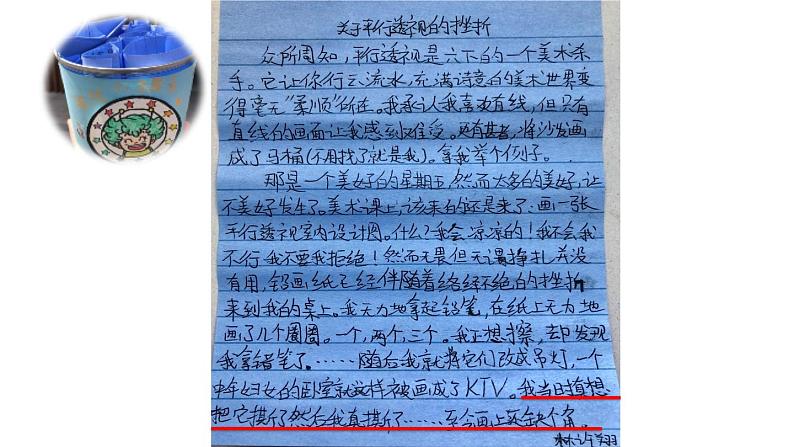 关于平行透视的挫折
众所周知，平行透视是六下的一个美术杀
手。它让你行云流水，充满诗意的美术世界变
得毫无“柔顺”所在。我承认我喜欢有线，但只有
直线的画面让我感到难受。更有甚者，将沙发画
成了马桶(不用找了就是我)。拿我举个例子。
那是一个美好的星期五，然而太多的美好，让
不美好发生了。美术课上，该来的还是来了：画一张
平行透视室内设计图。什么？我会凉凉的！我不会我
不行我不要我拒绝！然而无畏但无谓挣扎并没
有用，铅画纸已经伴随着络绎不绝的挫折
来到我的桌上。我无力地拿起铅笔，在纸上无力地
画了几个圈圈。一个，两个，三个。我正想擦，却发现
我拿错笔了。……随后我就将它们改成吊灯，一个
中年妇女的卧室就这样被画成了KTV。我当时真想
把它撕了然后我真撕了……至今画上还缺个角。
林许翔